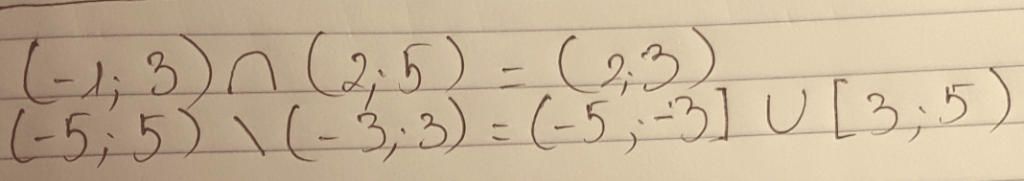 (-1; 3) ∩ (2; 5) = (2; 3)
(-5; 5) \ (-3; 3) = (-5; -3] ∪ [3; 5)